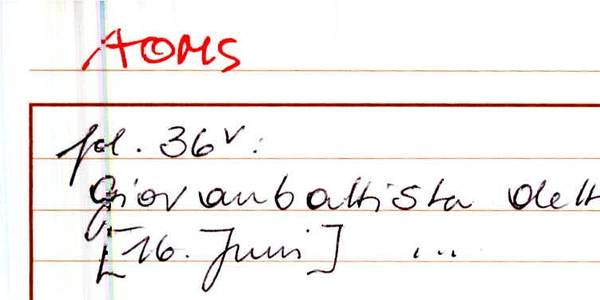 AOMS
fol. 36v:
Giovanbattista dett
[16. Juni] ...